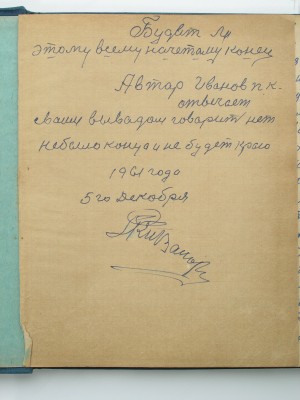 Будет ли
этому всему начетому конец
Автар Иванов п к.
отвичает
сваим вывадом говарит нет
небыло конца и не будет краю
1961 года
5 го Декобря
Иванов